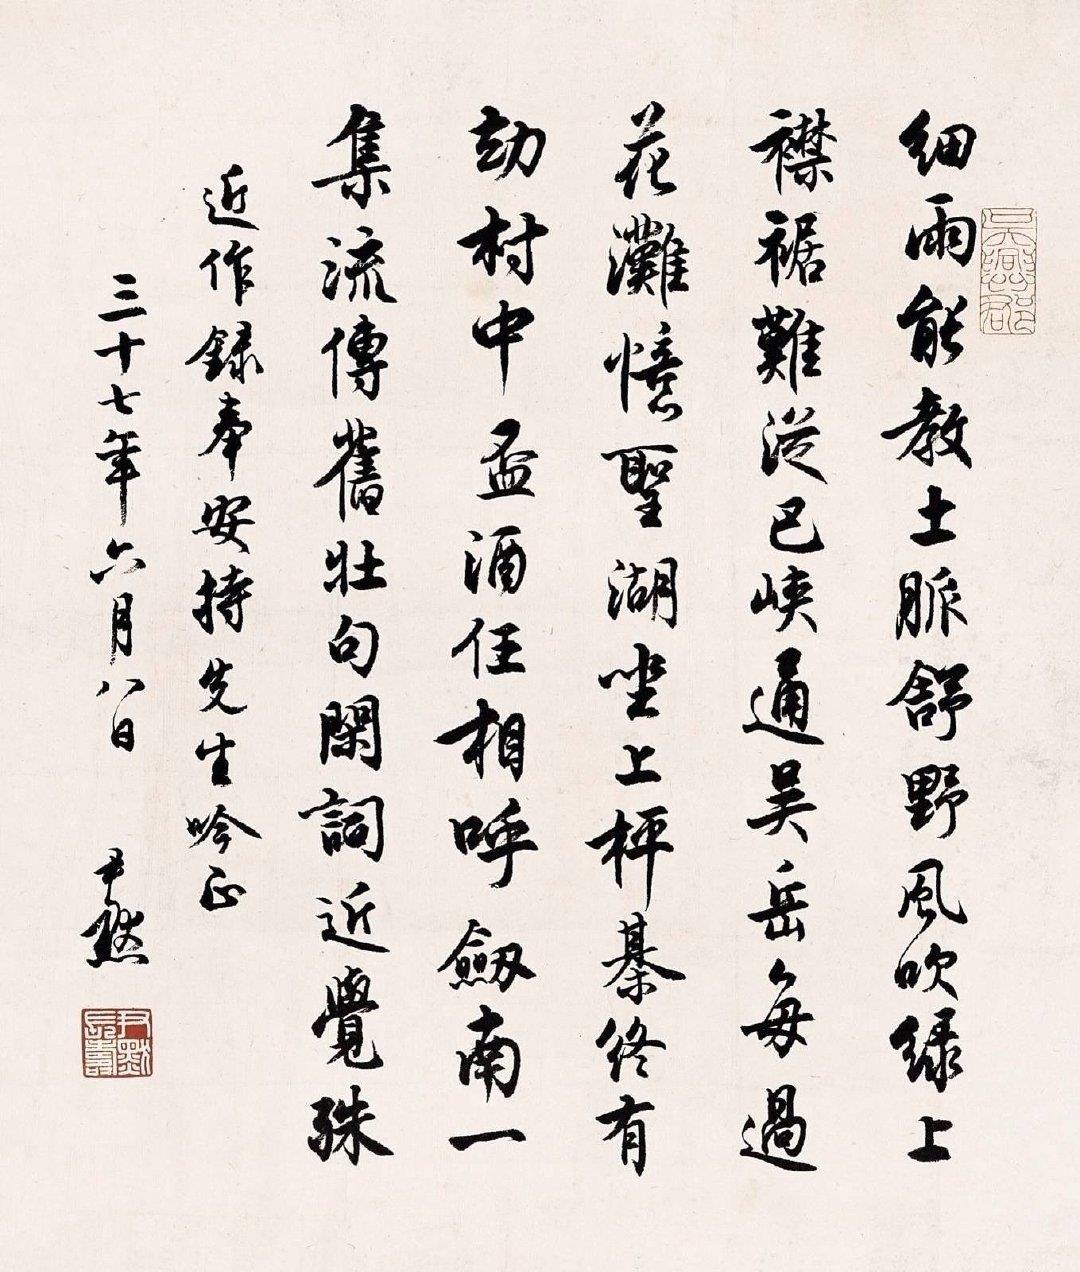 細雨能教土脈舒野風吹綠上
襟裾難從巴峽通吳岳每過
花灘憶聖湖坐上枰棊終有
劫村中盃酒任相呼劔南一
集流傳舊壯句閑詞近覺殊
近作録奉安持先生吟正
三十七年六月八日
尹默
尹默
長壽